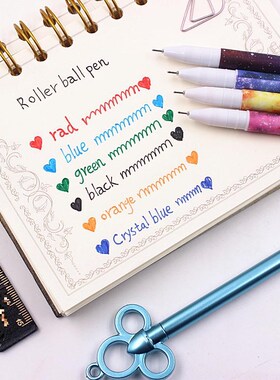 Roller ball pen
red
blue
green
black
orange
Crystal blue